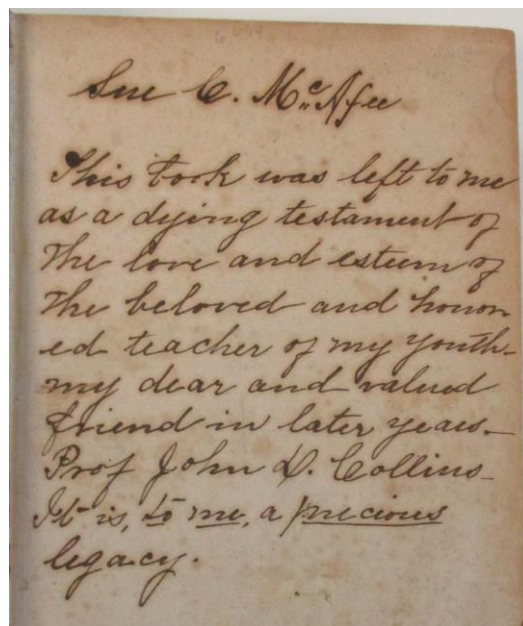 Sue C. McAfee
This book was left to me
as a dying testament of
the love and esteem of
the beloved and honor-
ed teacher of my youth-
my dear and valued
friend in later years-
Prof John D. Collins-
It is, to me, a precious
legacy.